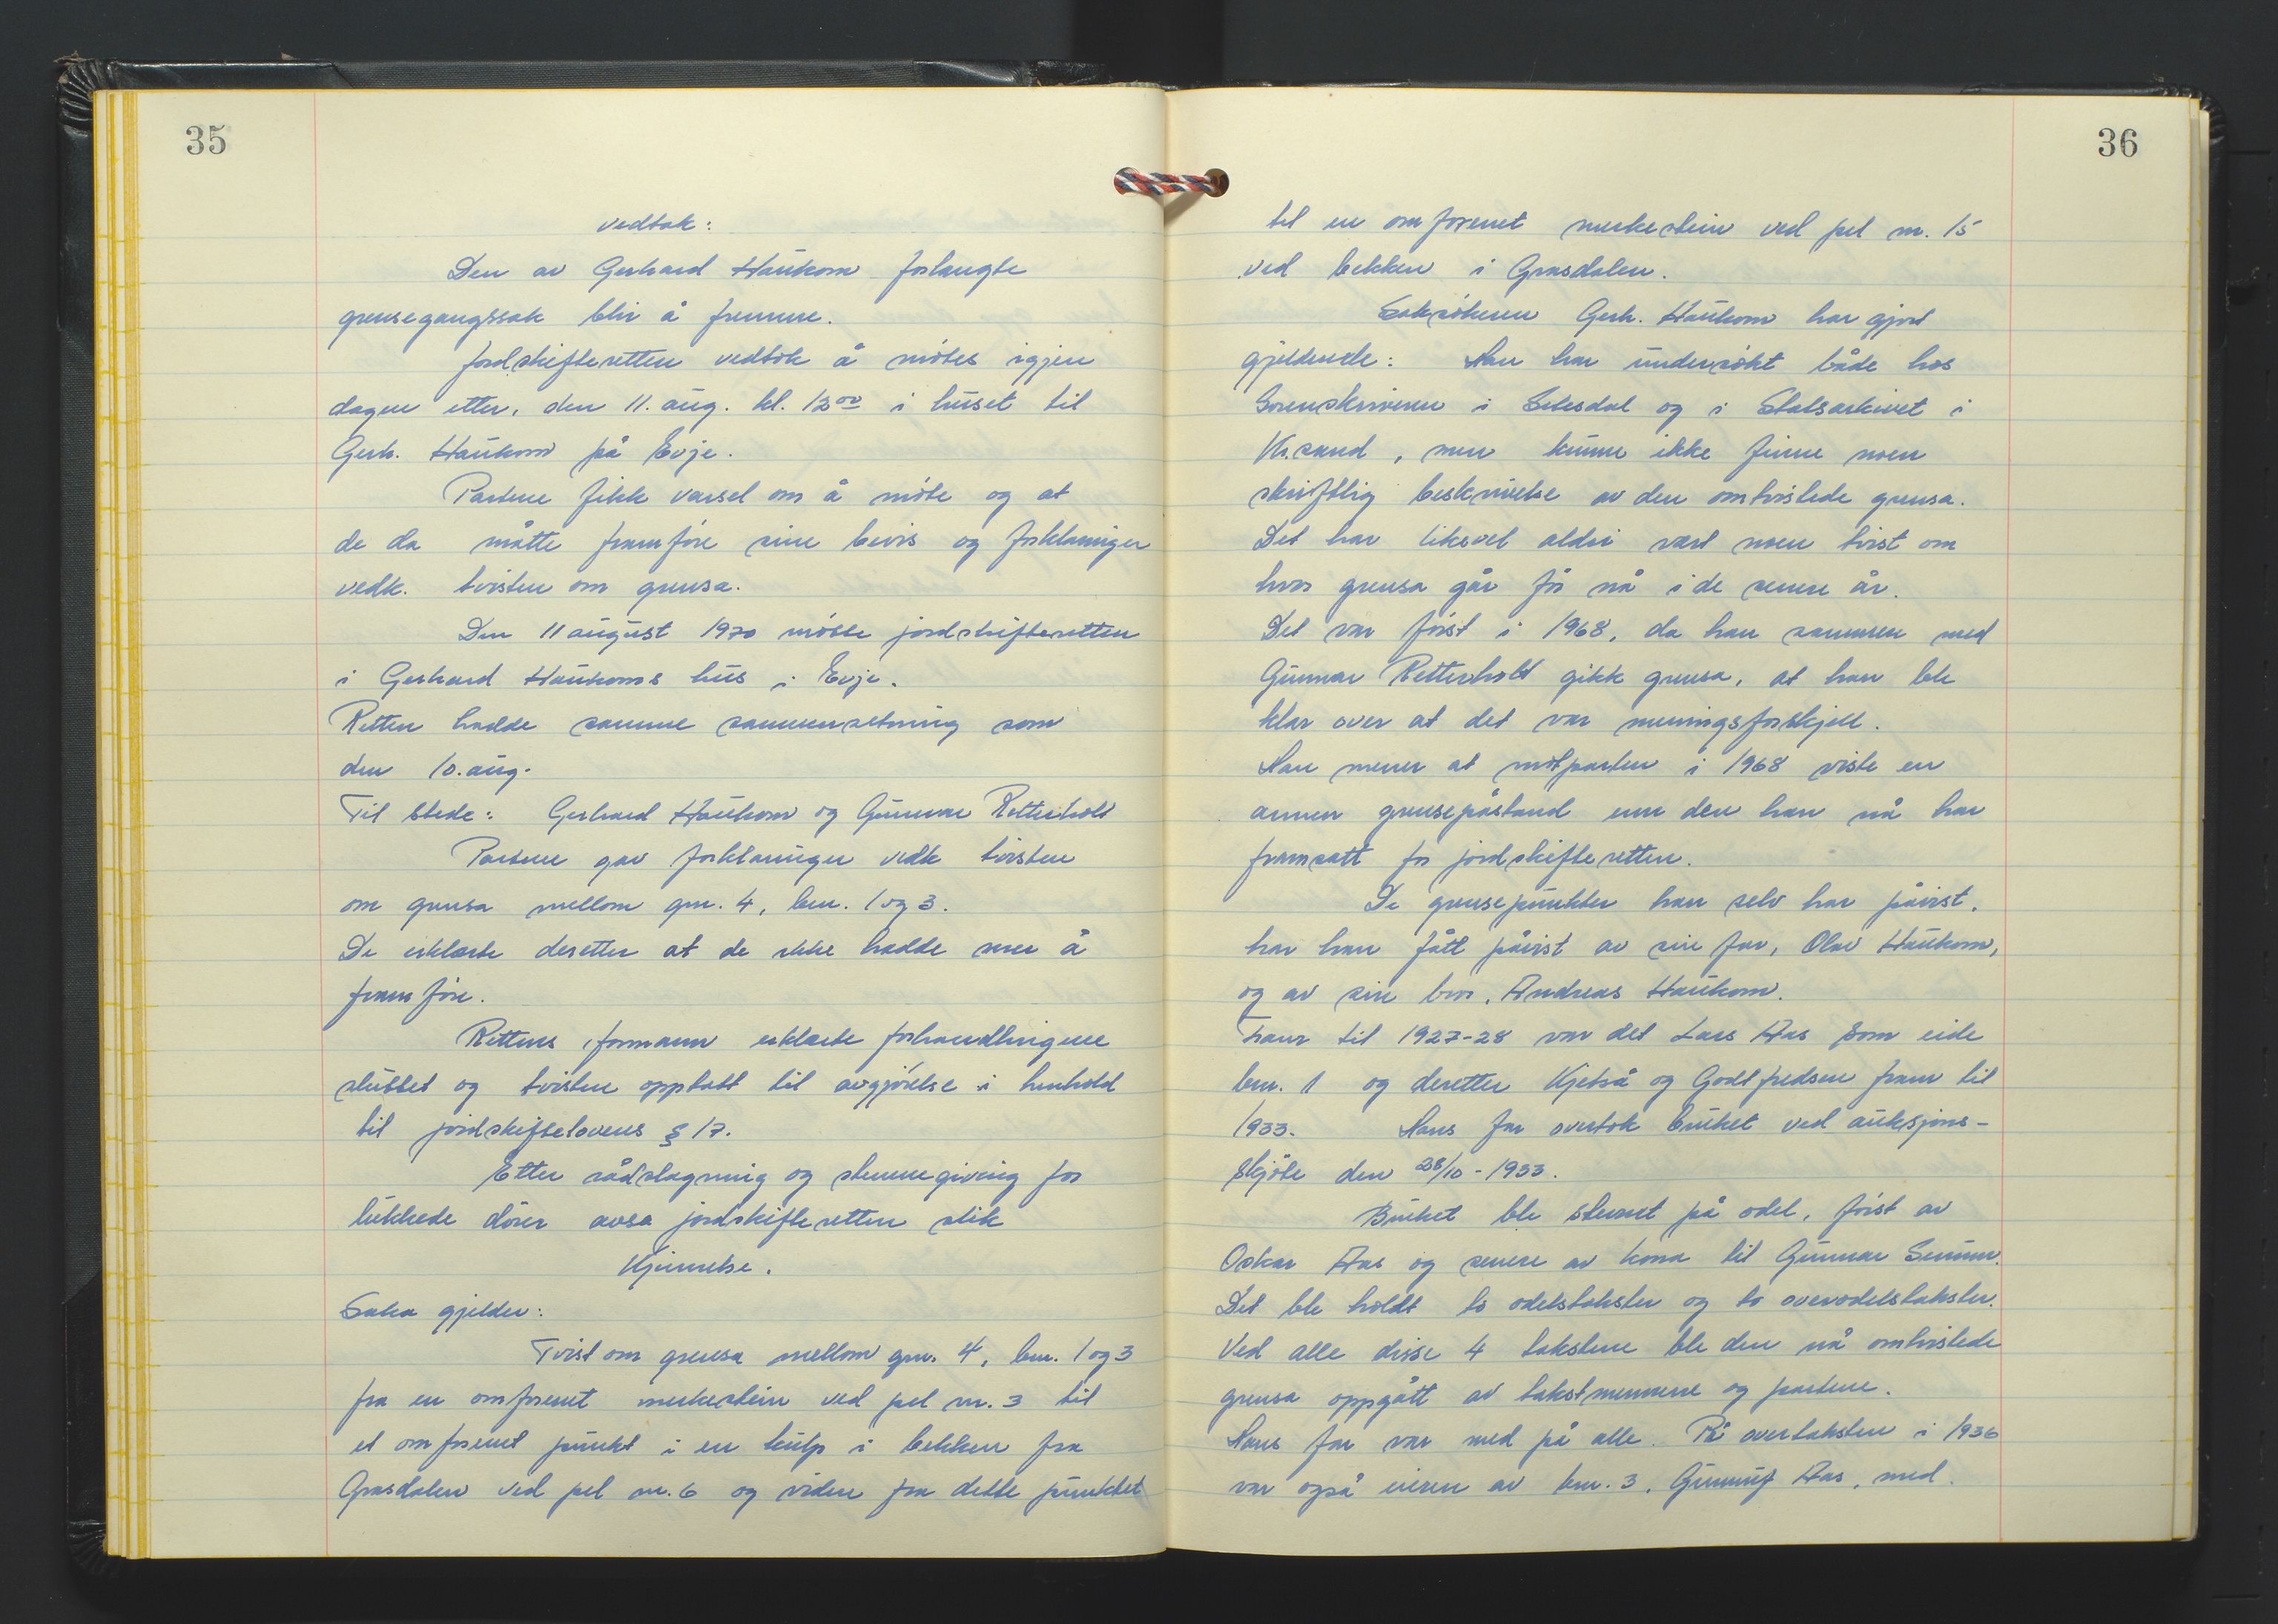 35
vedtak:
Den av Gerhard Haukom forlangte
grensegangssak blir å fremme.
Jordskifteretten vedtok å møtes igjen
dagen etter, den 11. aug. kl. 12⁰⁰ i huset til
Gerh. Haukom på Evje.
Partene fikk varsel om å møte og at
de da måtte framføre sine bevis og forklaringer
vedk. tvisten om grensa.
Den 11 august 1970 møtte jordskifteretten
i Gerhard Haukoms hus i Evje.
Retten hadde samme sammensetning som
den 10. aug.
Til stede: Gerhard Haukom og Gunnar Retterholt
Partene gav forklaringer vedk tvisten
om grensa mellom gnr. 4, bnr. 1 og 3.
De erklærte deretter at de ikke hadde mer å
framføre.
Rettens formann erklærte forhandlingene
sluttet og tvisten opptatt til avgjørelse i henhold
til jordskiftelovens § 17.
Etter rådslagning og stemmegivning for
lukkede dører avsa jordskifteretten slik
Kjennelse.
Saka gjelder:
Tvist om grensa mellom gnr. 4, bnr. 1 og 3
fra en omforenet merkestein ved pel nr. 3 til
et omforenet punkt i en kulp i bekken fra
Grasdalen ved pel nr. 6 og videre fra dette punktet
36
til en omforenet merkestein ved pel nr. 15
ved bekken i Grasdalen.
Saksøkeren Gerh. Haukom har gjort
gjeldende: Han har undersøkt både hos
Sorenskriveren i Setesdal og i Statsarkivet i
Kr.sand, men kunne ikke finne noen
skriftlig beskrivelse av den omtvistede grensa.
Det har likevel aldri vært noen tvist om
hvor grensa går før nå i de senere år.
Det var først i 1968, da han sammen med
Gunnar Retterholt gikk grensa, at han ble
klar over at det var meningsforskjell.
Han mener at motparten i 1968 viste en
annen grensepåstand enn den han nå har
framsatt for jordskifteretten.
De grensepunkter han selv har påvist,
har han fått påvist av sin far, Olav Haukom,
og av sin bror, Andreas Haukom.
Fram til 1927-28 var det Lars Aas som eide
bnr. 1 og deretter Kjetså og Godtfredsen fram til
1933. Hans far overtok bruket ved auksjons-
skjøte den 28/10-1933.
Bruket ble stevnet på odel, først av
Oskar Aas og senere av kona til Gunnar
Det ble holdt to odelstakster og to overodelstakster.
Ved alle disse 4 takstene ble den nå omtvistede
grensa oppgått av takstmennene og partene.
Hans far var med på alle. På overtaksten i 1936
var også eieren av bnr. 3, Aas, med.